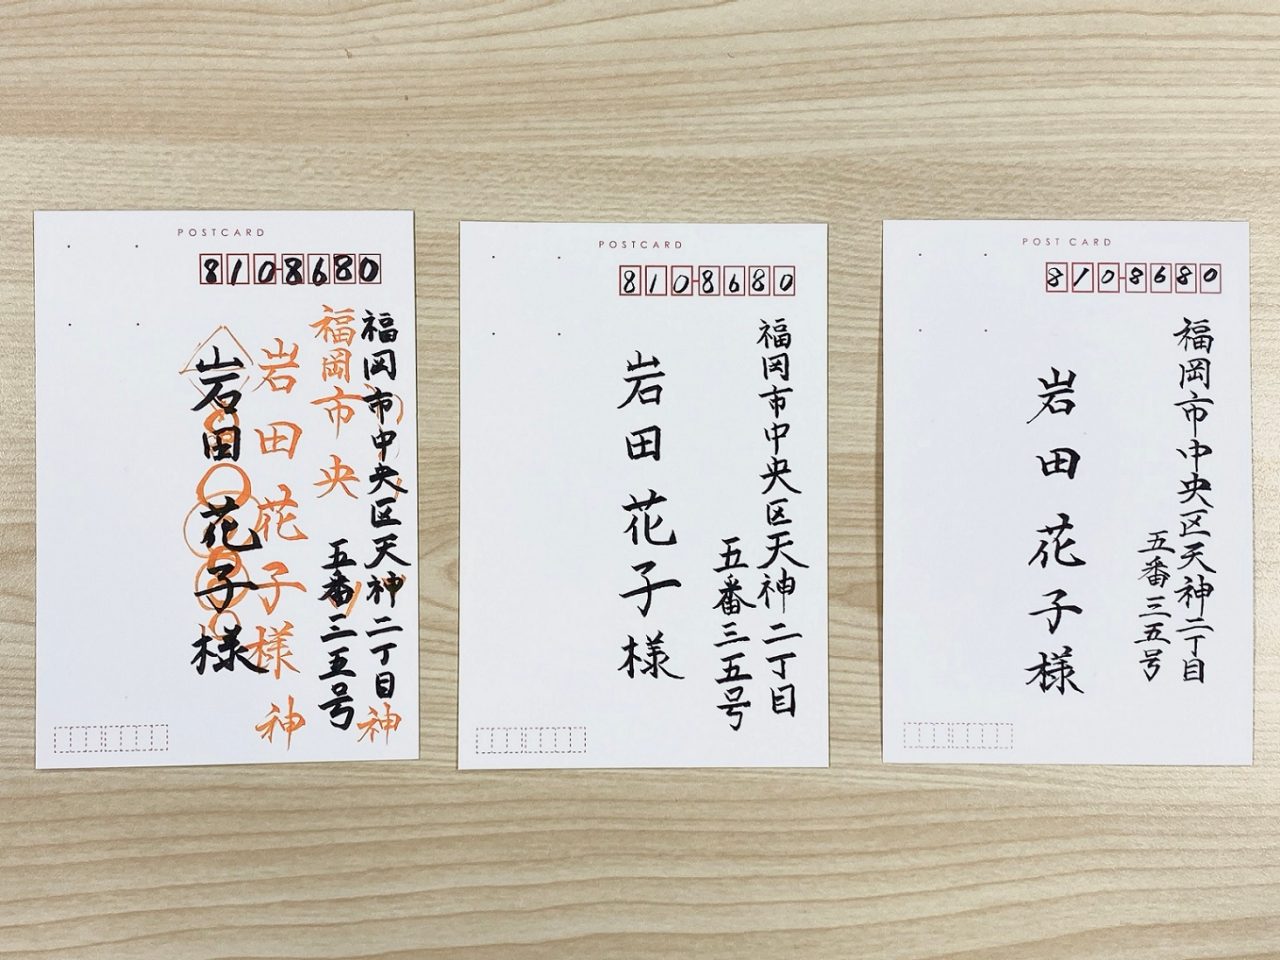 POSTCARD
8108680
福岡市中央区天神二丁目
五番三五号
岩田花子様
福岡市央
岩田花子様
神
神
POSTCARD
8108680
福岡市中央区天神二丁目
五番三五号
岩田花子様
POST CARD
8108680
福岡市中央区天神二丁目
五番三五号
岩田花子様